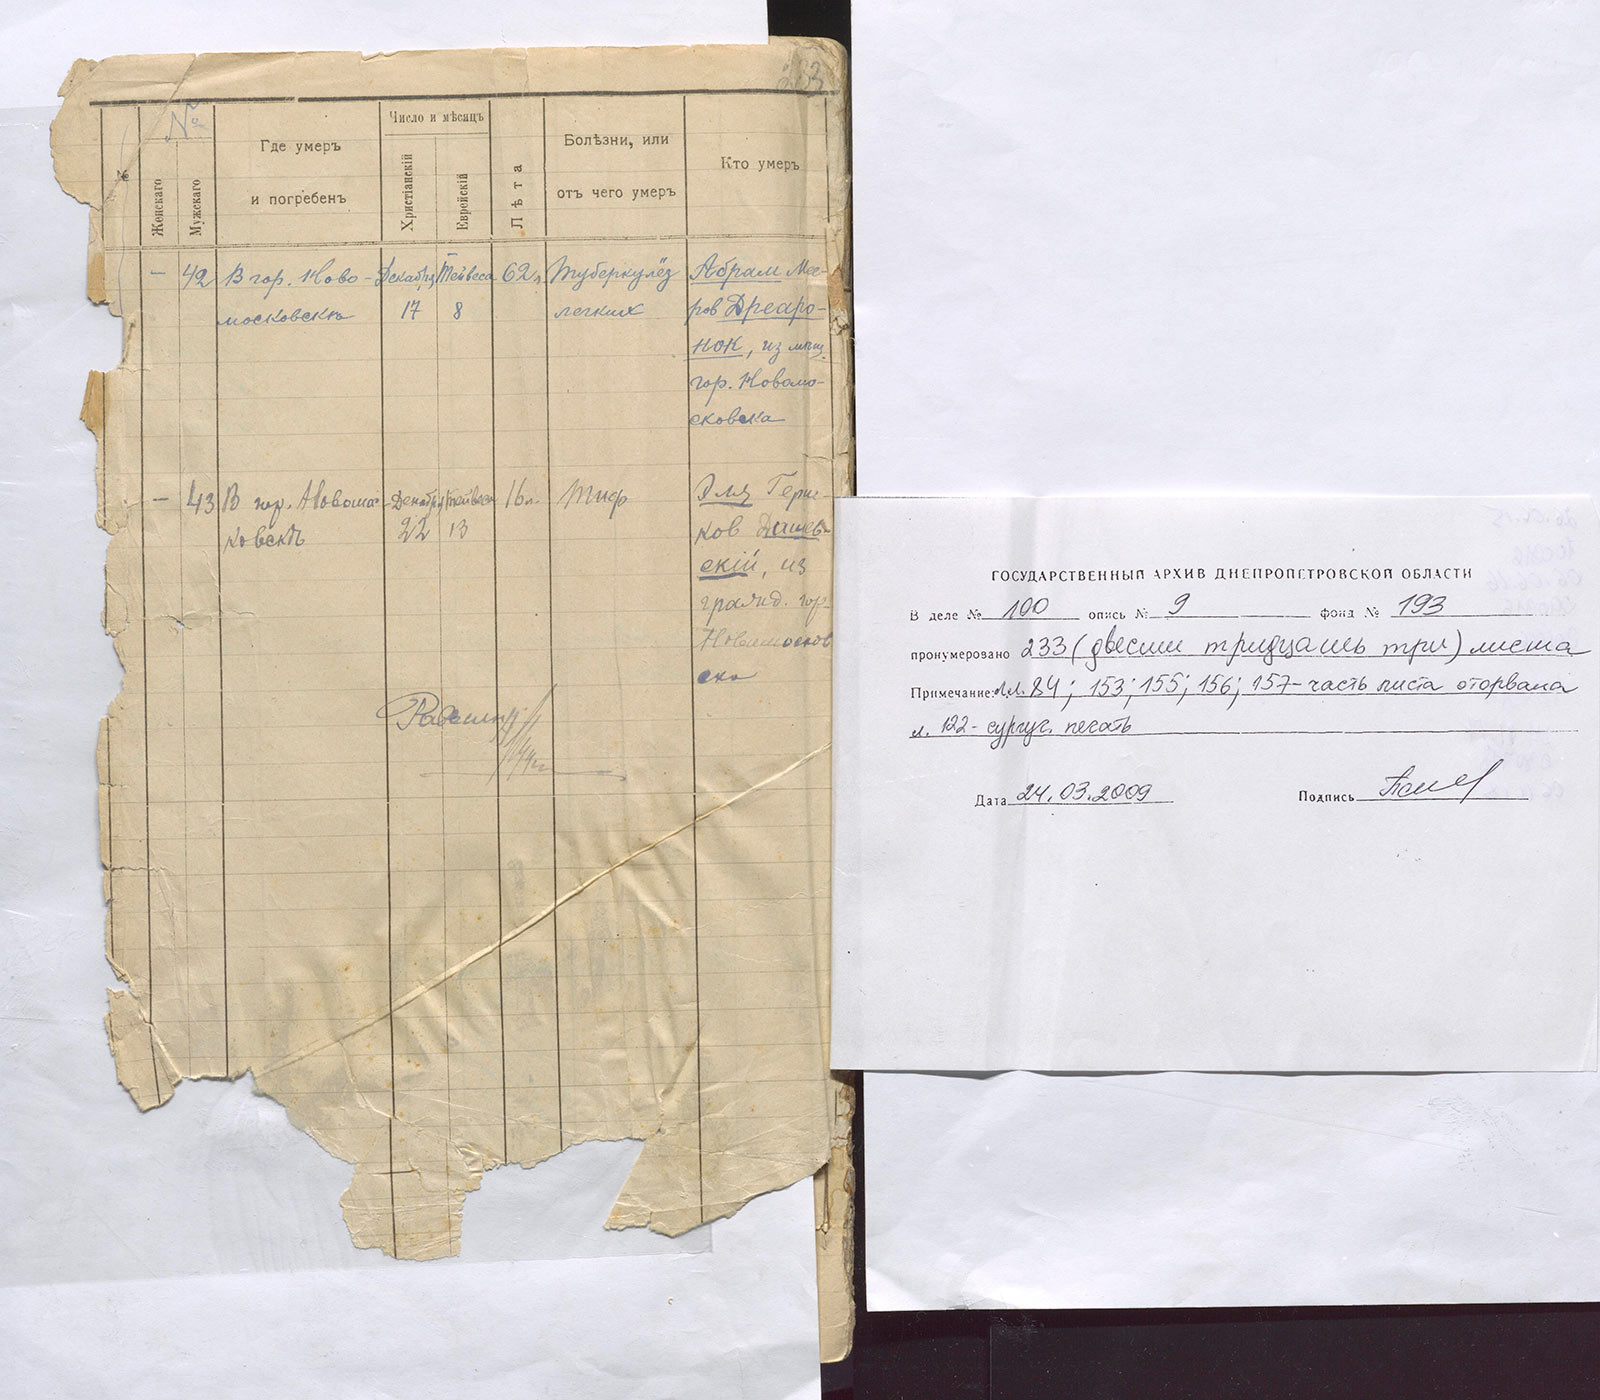 233
№
№
Женскаго
Мужскаго
Где умеръ
и погребенъ
Число и мѣсяцъ
Христіанскій
Еврейскій
Лѣта
Болѣзни, или
отъ чего умеръ
Кто умеръ
— 42 В гор. Ново- Декабря Тейвеса 62 л. Туберкулёз Абрам Мее-
московскъ 17 8 легких ров Дреаро-
нок, из мѣщ.
гор. Новомо-
сковска
— 43 В гор. Новомос- Декабря Тейвеса 16 л. Тиф Эля
ковскъ 22 13 ков Дашев-
скій, из
гражд. гор.
Новомосков
ска
ГОСУДАРСТВЕННЫЙ АРХИВ ДНЕПРОПЕТРОВСКОЙ ОБЛАСТИ
В деле № 100 опись № 9 фонд № 193
пронумеровано 233 (двести тридцать три) листа
Примечание: л.л. 84; 153; 155; 156; 157 - часть листа оторвана
л. 122 - сургуч. печать
Дата 24.03.2009 Подпись